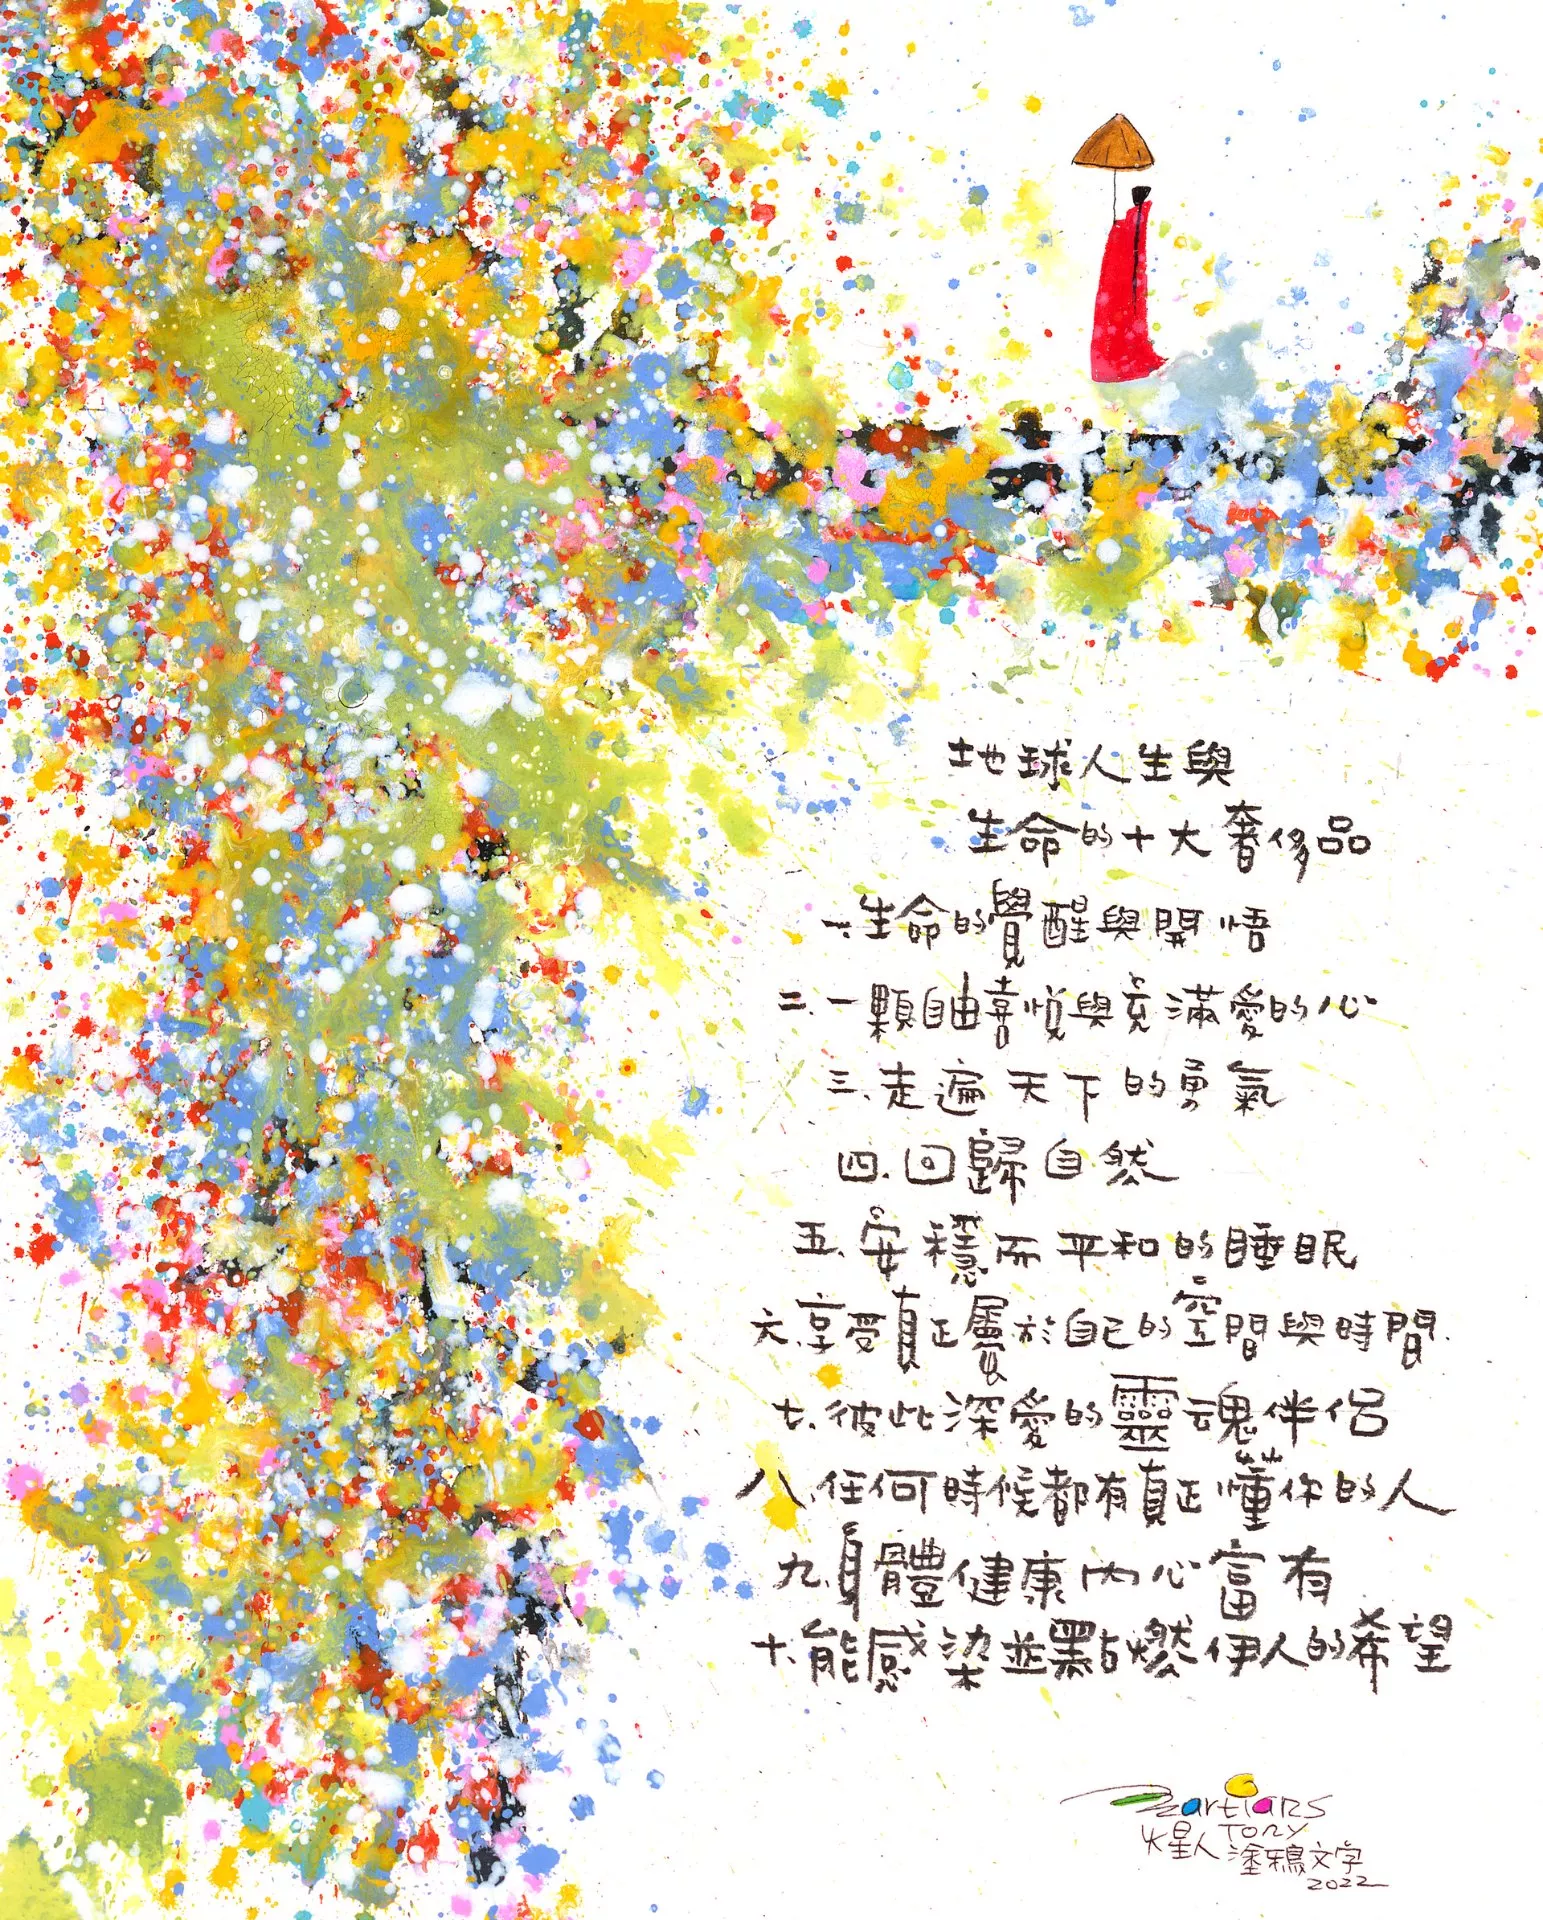 地球人生與
生命的十大奢侈品
一、生命的覺醒與開悟
二、一顆自由喜悅與充滿愛的心
三、走遍天下的勇氣
四、回歸自然
五、安穩而平和的睡眠
六、享受真正屬於自己的空間與時間.
七、彼此深愛的靈魂伴侶
八、任何時候都有真正懂你的人
九、身體健康內心富有
十、能感染並點燃伊人的希望
Martians
Tony
火星人 塗鴉文字
2022